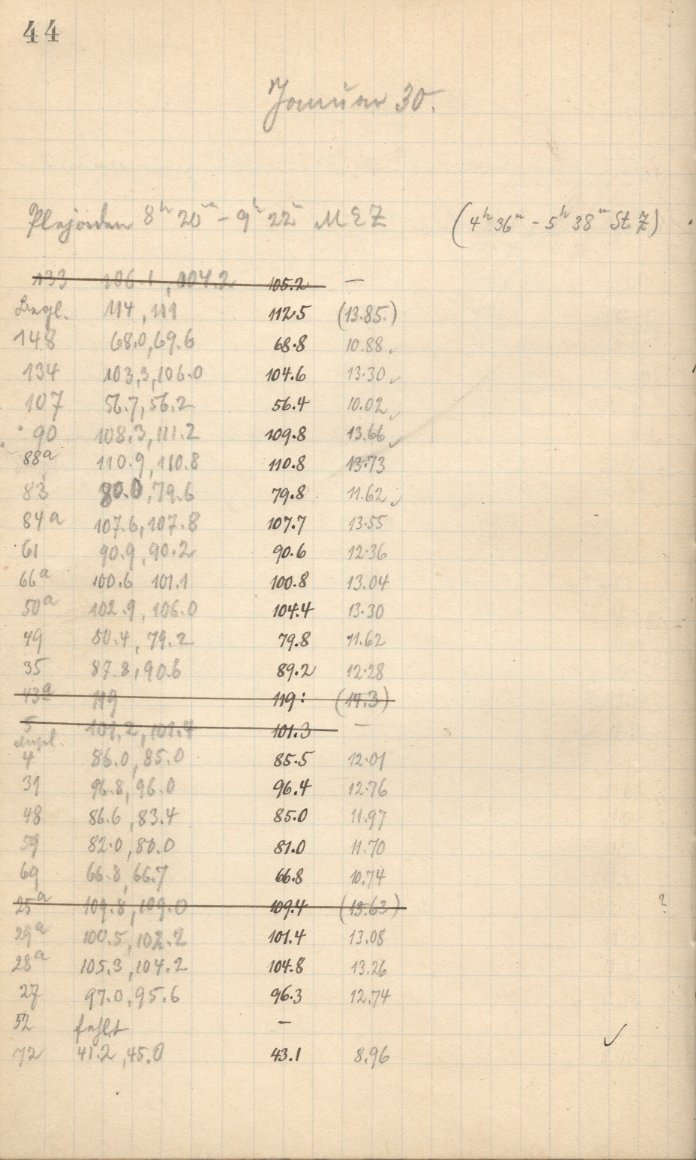 44
Januar 30.
Plejaden 8h 20m - 9h 22m MEZ (4h 36m - 5h 38m St Z)
133 106.1, 104.2 105.2 —
Begl. 114, 111 112.5 (13.85.)
148 68.0, 69.6 68.8 10.88
134 103.3, 106.0 104.6 13.30
107 56.7, 56.2 56.4 10.02
90 108.3, 111.2 109.8 13.66
88a 110.9, 110.8 110.8 13.73
83 80.0, 79.6 79.8 11.62
84a 107.6, 107.8 107.7 13.55
61 90.9, 90.2 90.6 12.36
66a 100.6 101.1 100.8 13.04
50a 102.9, 106.0 104.4 13.30
49 80.4, 79.2 79.8 11.62
35 87.8, 90.6 89.2 12.28
43a 119 119: (14.3)
5 101.2, 101.4 101.3 —
4 86.0, 85.0 85.5 12.01
31 96.8, 96.0 96.4 12.76
48 86.6, 83.4 85.0 11.97
59 82.0, 80.0 81.0 11.70
69 66.8, 66.7 66.8 10.74
25a 109.8, 109.0 109.4 (13.63) ?
29a 100.5, 102.2 101.4 13.08
28a 105.3, 104.2 104.8 13.26
27 97.0, 95.6 96.3 12.74
52 fehlt —
72 41.2, 45.0 43.1 8.96